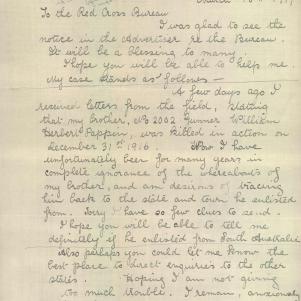 To the Red Cross Bureau
I was glad to see the
notice in the Advertiser re the Bureau.
It will be a blessing to many.
I hope you will be able to help me.
My case stands as follows—
A few days ago I
received letters from the field, stating
that my brother, No 2002 Gunner William
Herbert Pappin, was killed in action on
December 31st 1916. Now I have
unfortunately been for many years in
complete ignorance of the whereabouts of
my brother, and am desirous of tracing
him back to the state and town he enlisted
from. Sorry I have so few clues to send.
I hope you will be able to tell me
definitely if he enlisted from South Australia
Also perhaps you could let me know the
best place to direct enquiries to the other
states. Hoping I am not giving
too much trouble. I remain, anxiously